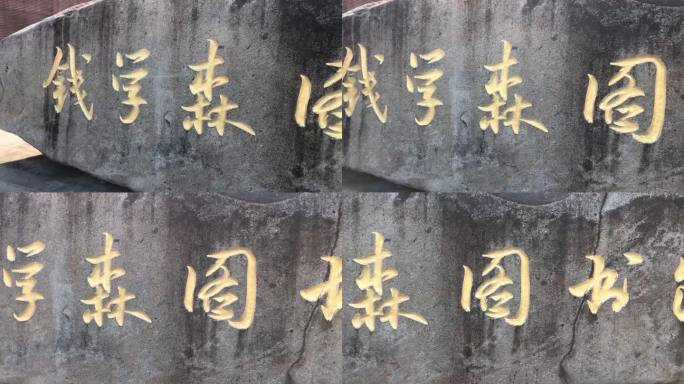 钱学森图
钱学森图
学森图书
森图书馆